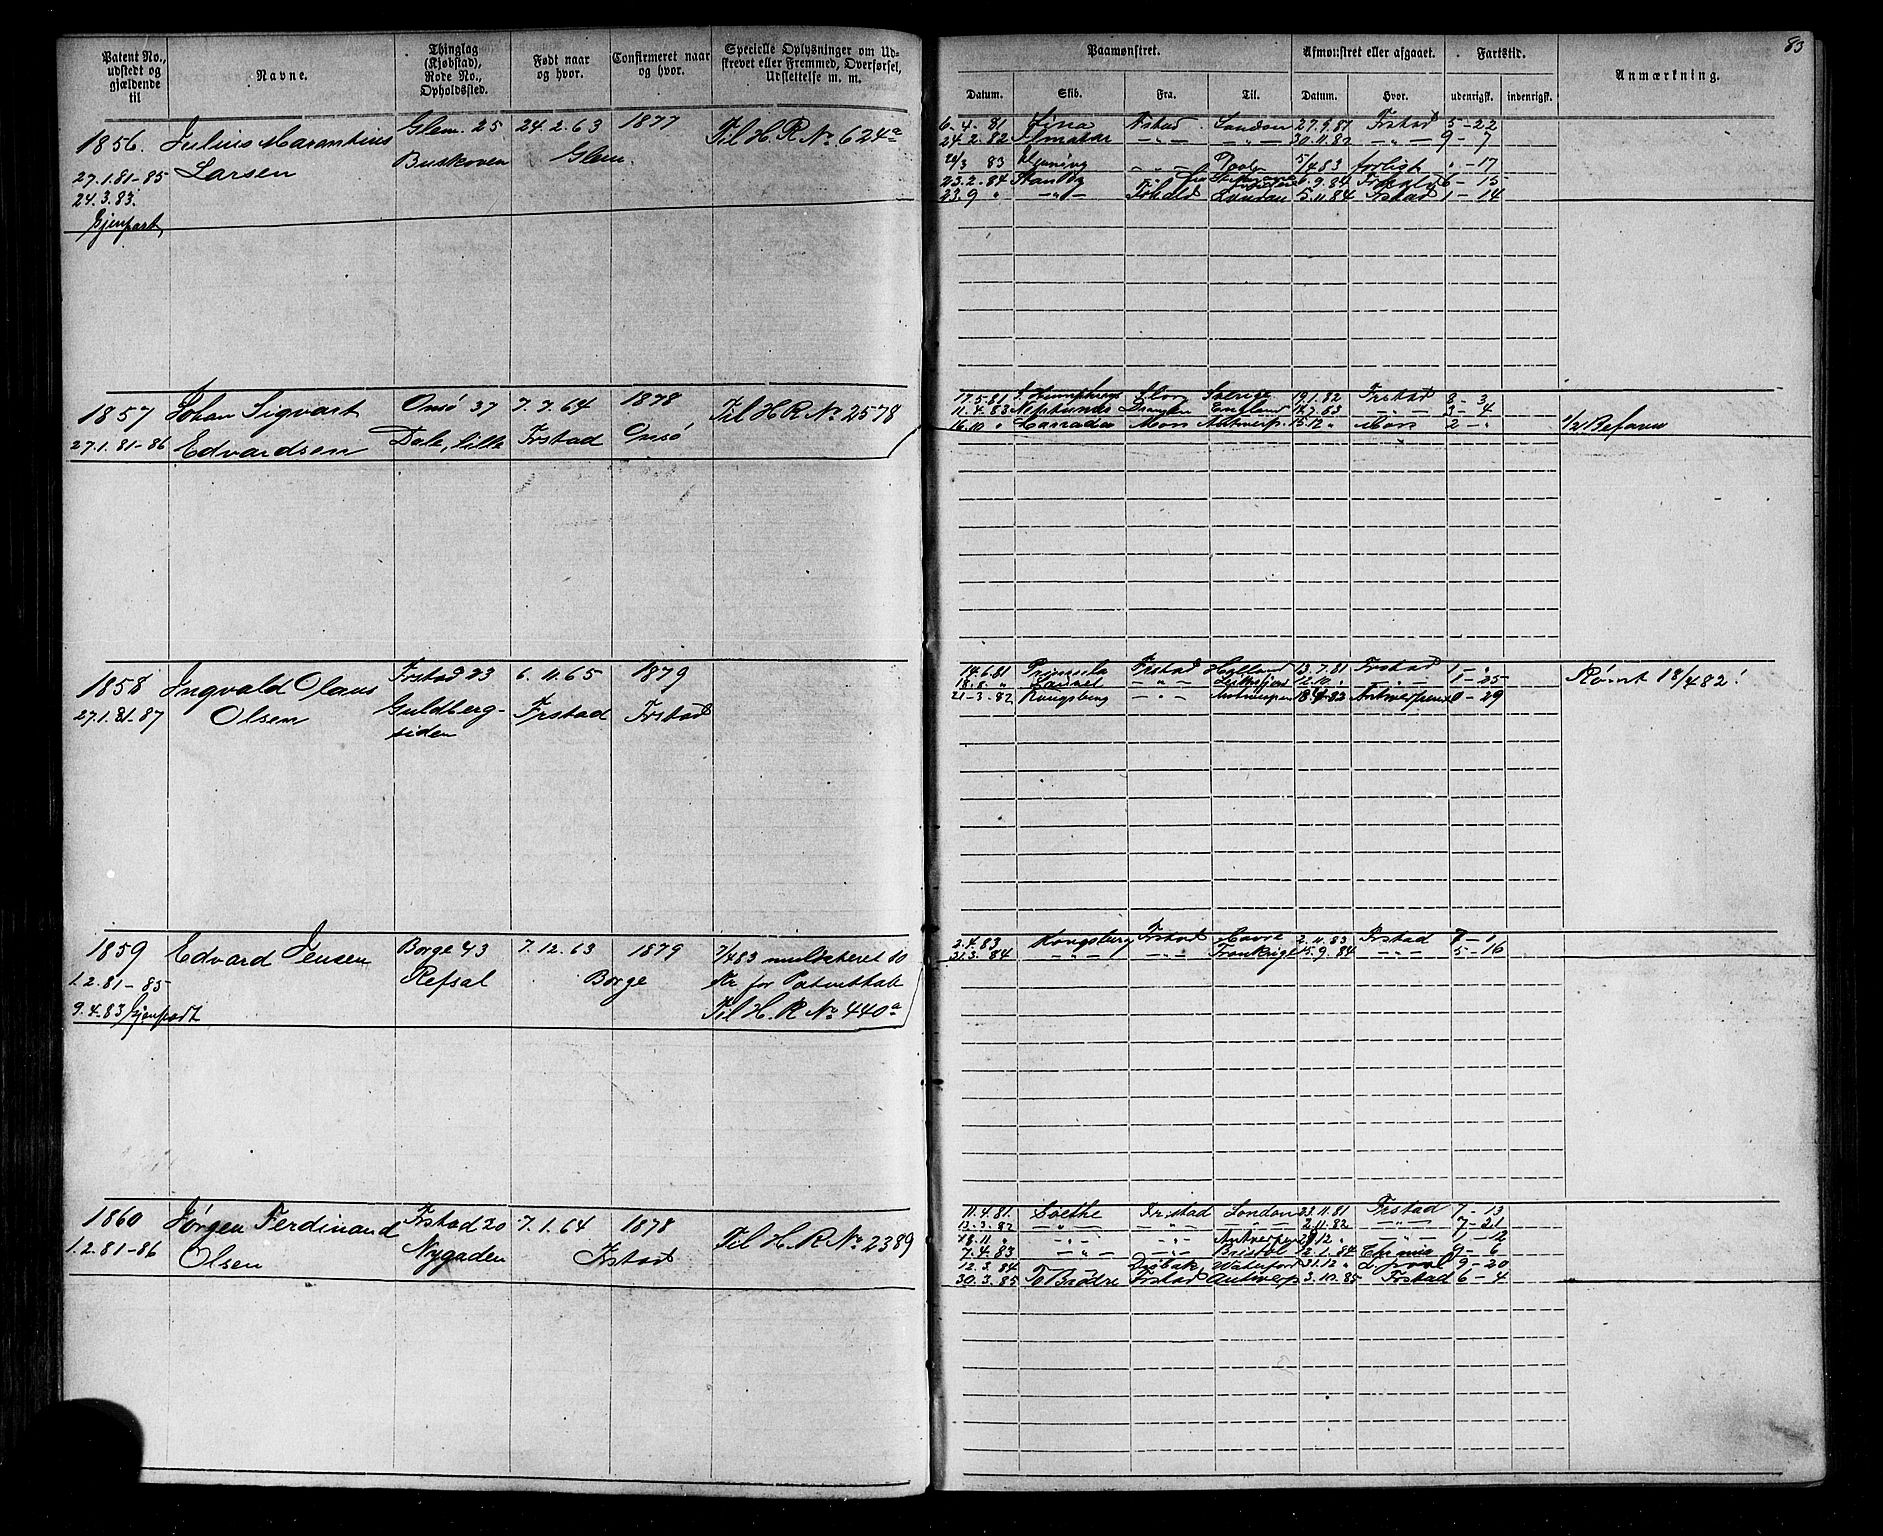 83
Patent No., udstedt og gjældende til
Navne.
Thinglag (Kjøbstad), Rode No., Opholdssted.
Født naar og hvor.
Confirmeret naar og hvor.
Specielle Oplysninger om Udskrevet eller Fremmed, Overførsel, Udslettelse m. m.
Paamønstret.
Afmønstret eller afgaaet.
Fartstid.
Anmærkning.
Datum. Skib. Fra. Til. Datum. Hvor. udenrigsk. indenrigsk.
1856. Julius Marantius Glem. 25 24.2.63 1877 Til H. R. No. 624a
27.1.81-85 Larsen Buskoven Glem.
24.3.83.
Gjenpart
6-4.81 Lina Fstad London 27.9.81 Frstad 5-22
24.2.82 30.11.82 9-7
83 5/4 83 forligt " -17
23.2.84 6.9.84 6-15
23.9 " London 5.11.84 Frstad 1-14
1857 Johan Sigvart Onsö 37 7.7.64 1878 Til H R No 2578
27.1.81-86 Edvardsen Dale, lille Frstad Onsö
17.5.81 Sverige 19.1.82 Frstad 8-3
11.4.83 Neptunus England 3-4
16.10 " Mos Antwerp. 15.12 " Mos 2-"
1858 Ingvald Olaus Frstad 23 6.11.65 1879
27.1.81-87 Olsen Guldberg- Frstad Frstad
siden
14.6.81 Frstad Holland 13.7.81 Frstad 1-"
12.10. " 1-25
21-3.82 Kongsberg -"- Antwerpen 18.4.82 Antwerpen 0-29
Rømt 18/4 82!
1859 Edvard Jensen Borge 43 7.12.63 1879 7/4 83 mulcteret 10
1.2.81-85 Refsal Borge Kr for Patenttab
9.4.83 Gjenpart Til H. R No. 440a
2.4.83 Kongsberg Frstad Havre 2.11.83 Frstad 7-1
31.3.84 -"- -"- Frankrige 15.9.84 -"- 5-16
1860 Jørgen Ferdinand Frstad 20 7.1.64 1878 Til H. R No. 2389
1.2.81-86 Olsen Nygaden Frstad
11.4.81. Goethe Frstad London 23.11.81 Frstad 7-13
13.3.82 -"- -"- -"- 2.11.82 -"- 7-21
18.11 " -"- -"- Antwerpen 12 " 1-12
7.4.83 -"- -"- Bristol 12.1.84 9-6
12.3.84 Drøbak Waterford 31.12 " 9-20
30.3.85 To Brødre Frstad Antwerp 3.10.85 Frstad 6-4